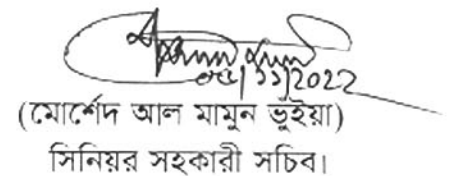 /11/2022
(মোর্শেদ আল মামুন ভূঁইয়া)
সিনিয়র সহকারী সচিব।